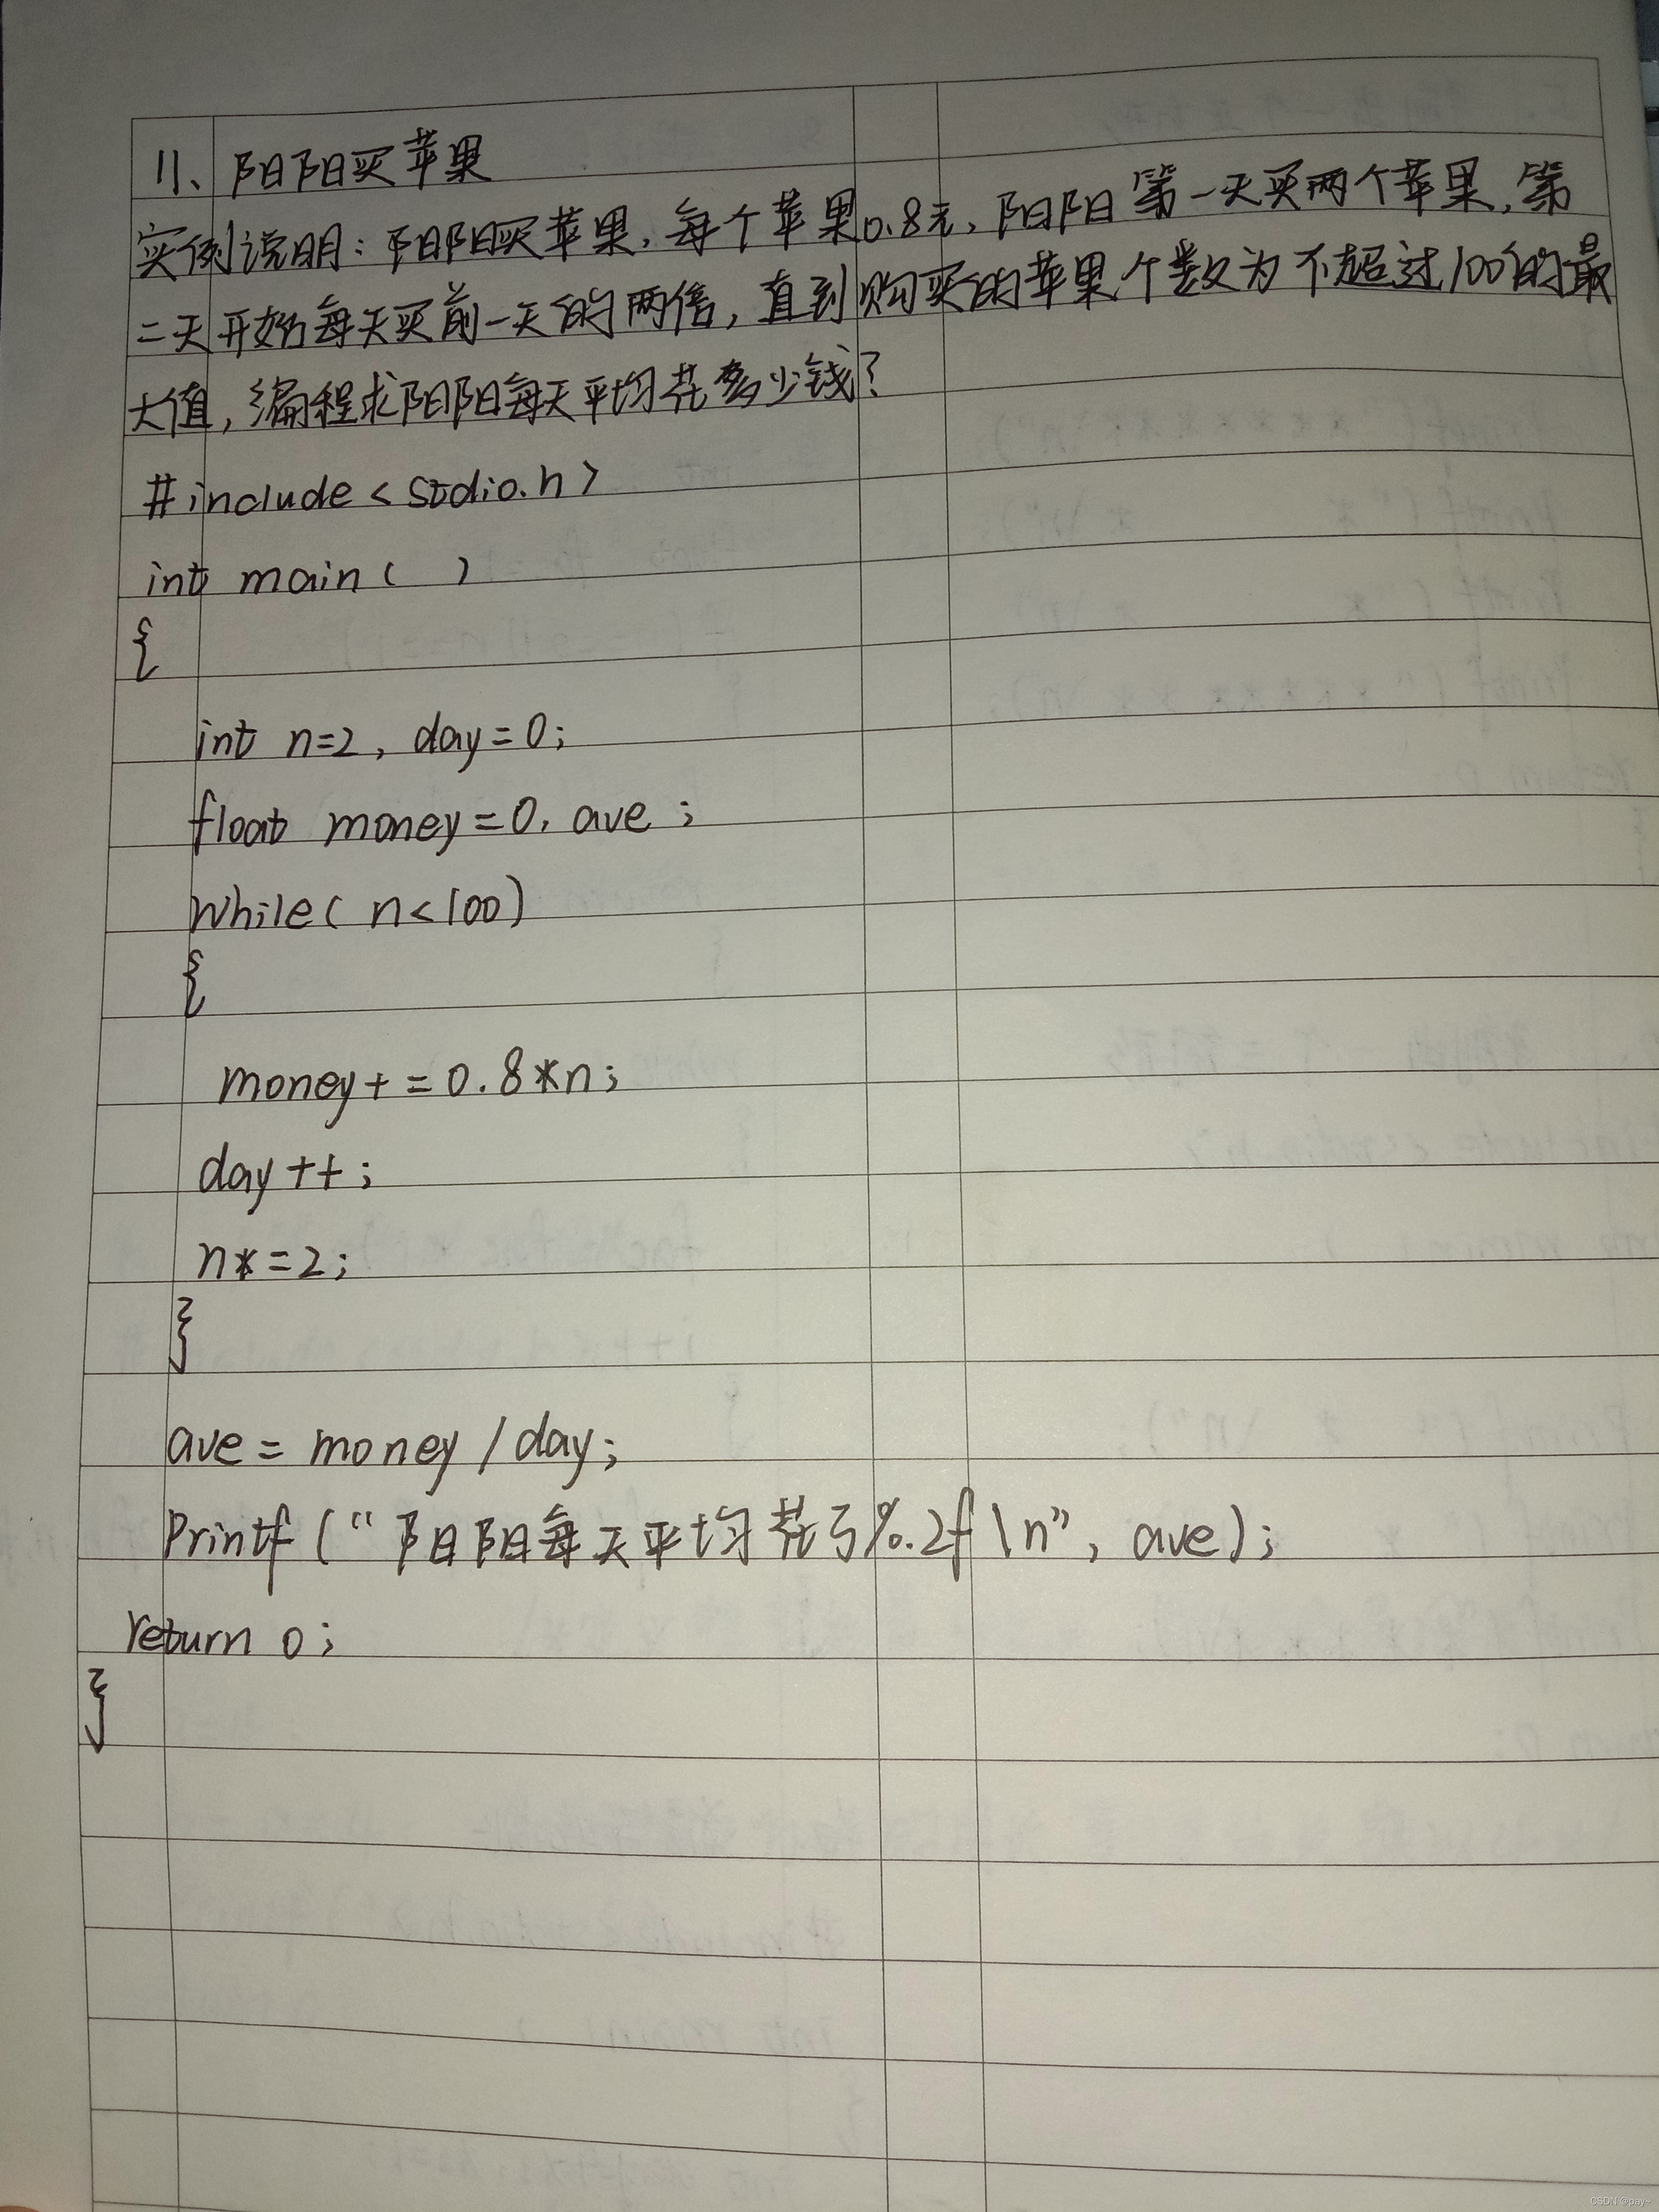 11、阳阳买苹果
实例说明：阳阳买苹果，每个苹果0.8元，阳阳第一天买两个苹果，第
二天开始每天买前一天的两倍，直到购买的苹果个数为不超过100的最
大值，编程求阳阳每天平均花多少钱？
#include<stdio.h>
int main( )
{
int n=2, day=0;
float money=0, ave ;
while( n<100)
{
money+=0.8*n;
day++;
n*=2;
}
ave = money / day;
Printf (“阳阳每天平均花了%.2f\n”, ave);
return 0;
}
CSDN @pay~